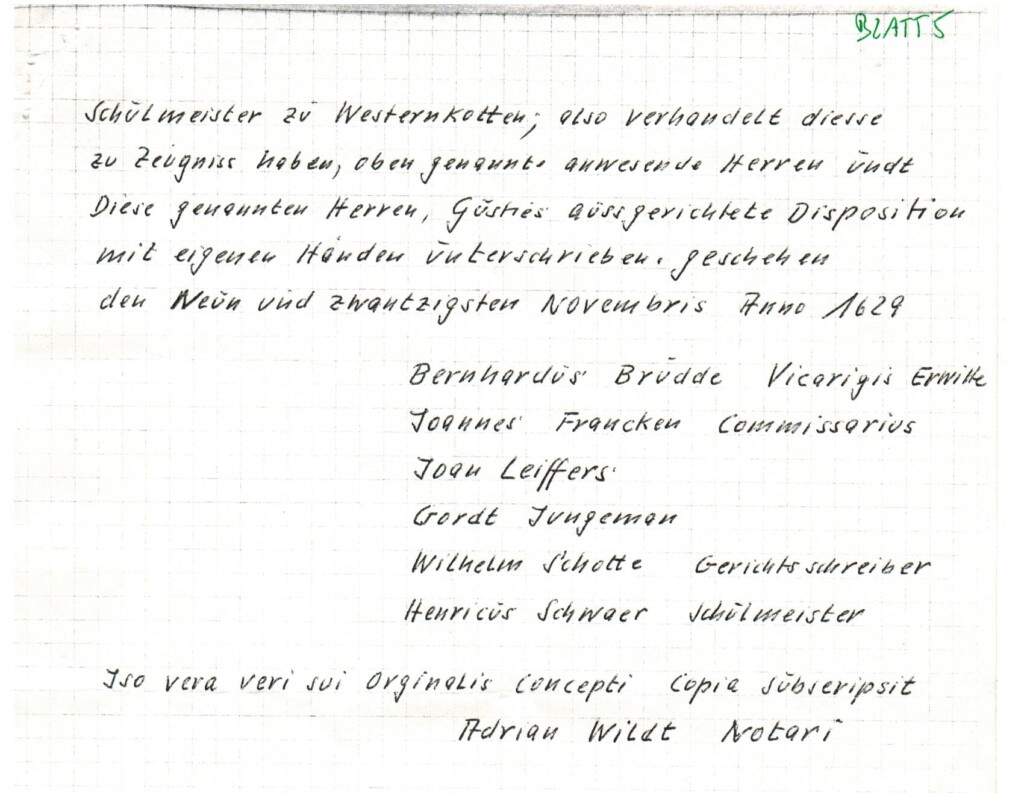 BLATT 5
Schülmeister zü Westernkotten; also verhandelt diesse
zu Zeügniss haben, oben genannte anwesende Herren ündt
Diese genannten Herren, Güsties aüssgerichtete Disposition
mit eigenen Händen ünterschrieben. geschehen
den Neün und zwantzigsten Novembris Anno 1629
Bernhardüs Brüdde Vicarigis Erwitte
Joannes Francken Commissarius
Joan Leiffers
Gordt Jungeman
Wilhelm Schotte Gerichtsschreiber
Henricüs Schwaer Schülmeister
Iso vera veri sui Orginalis Concepti Copia sübscripsit
Adrian Wildt Notari